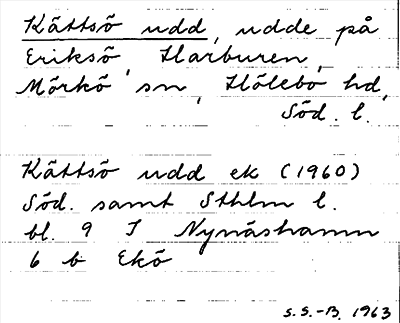 Kättsö udd, udde på
Eriksö, Harburen,
Mörkö sn, Hölebo hd,
Söd. l.
Kättsö udd ek (1960)
Söd. samt Sthlm l.
bl. 9 I Nynäshamn
6 b Ekö
S.S.-B. 1963